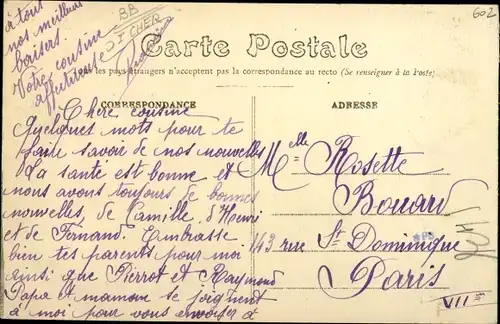 à tout
nos meilleurs
baisers.
Votre cousine
affectueuse
BB
DICHER
602
Carte Postale
les pays étrangers n'acceptent pas la correspondance au recto (Se renseigner à la Poste)
CORRESPONDANCE
ADRESSE
Chère cousine
Quelques mots pour te
faire savoir de nos nouvelles
La santé est bonne et
nous avons toujours de bonnes
nouvelles, de Camille, d'Henri
et de Fernand. Embrasse
bien tes parents pour moi
ainsi que Pierrot et Raymond
Papa et maman se joignent
à moi pour vous envoyer à
Melle Rosette
Bouard
143 rue St Dominique
Paris
VIIe